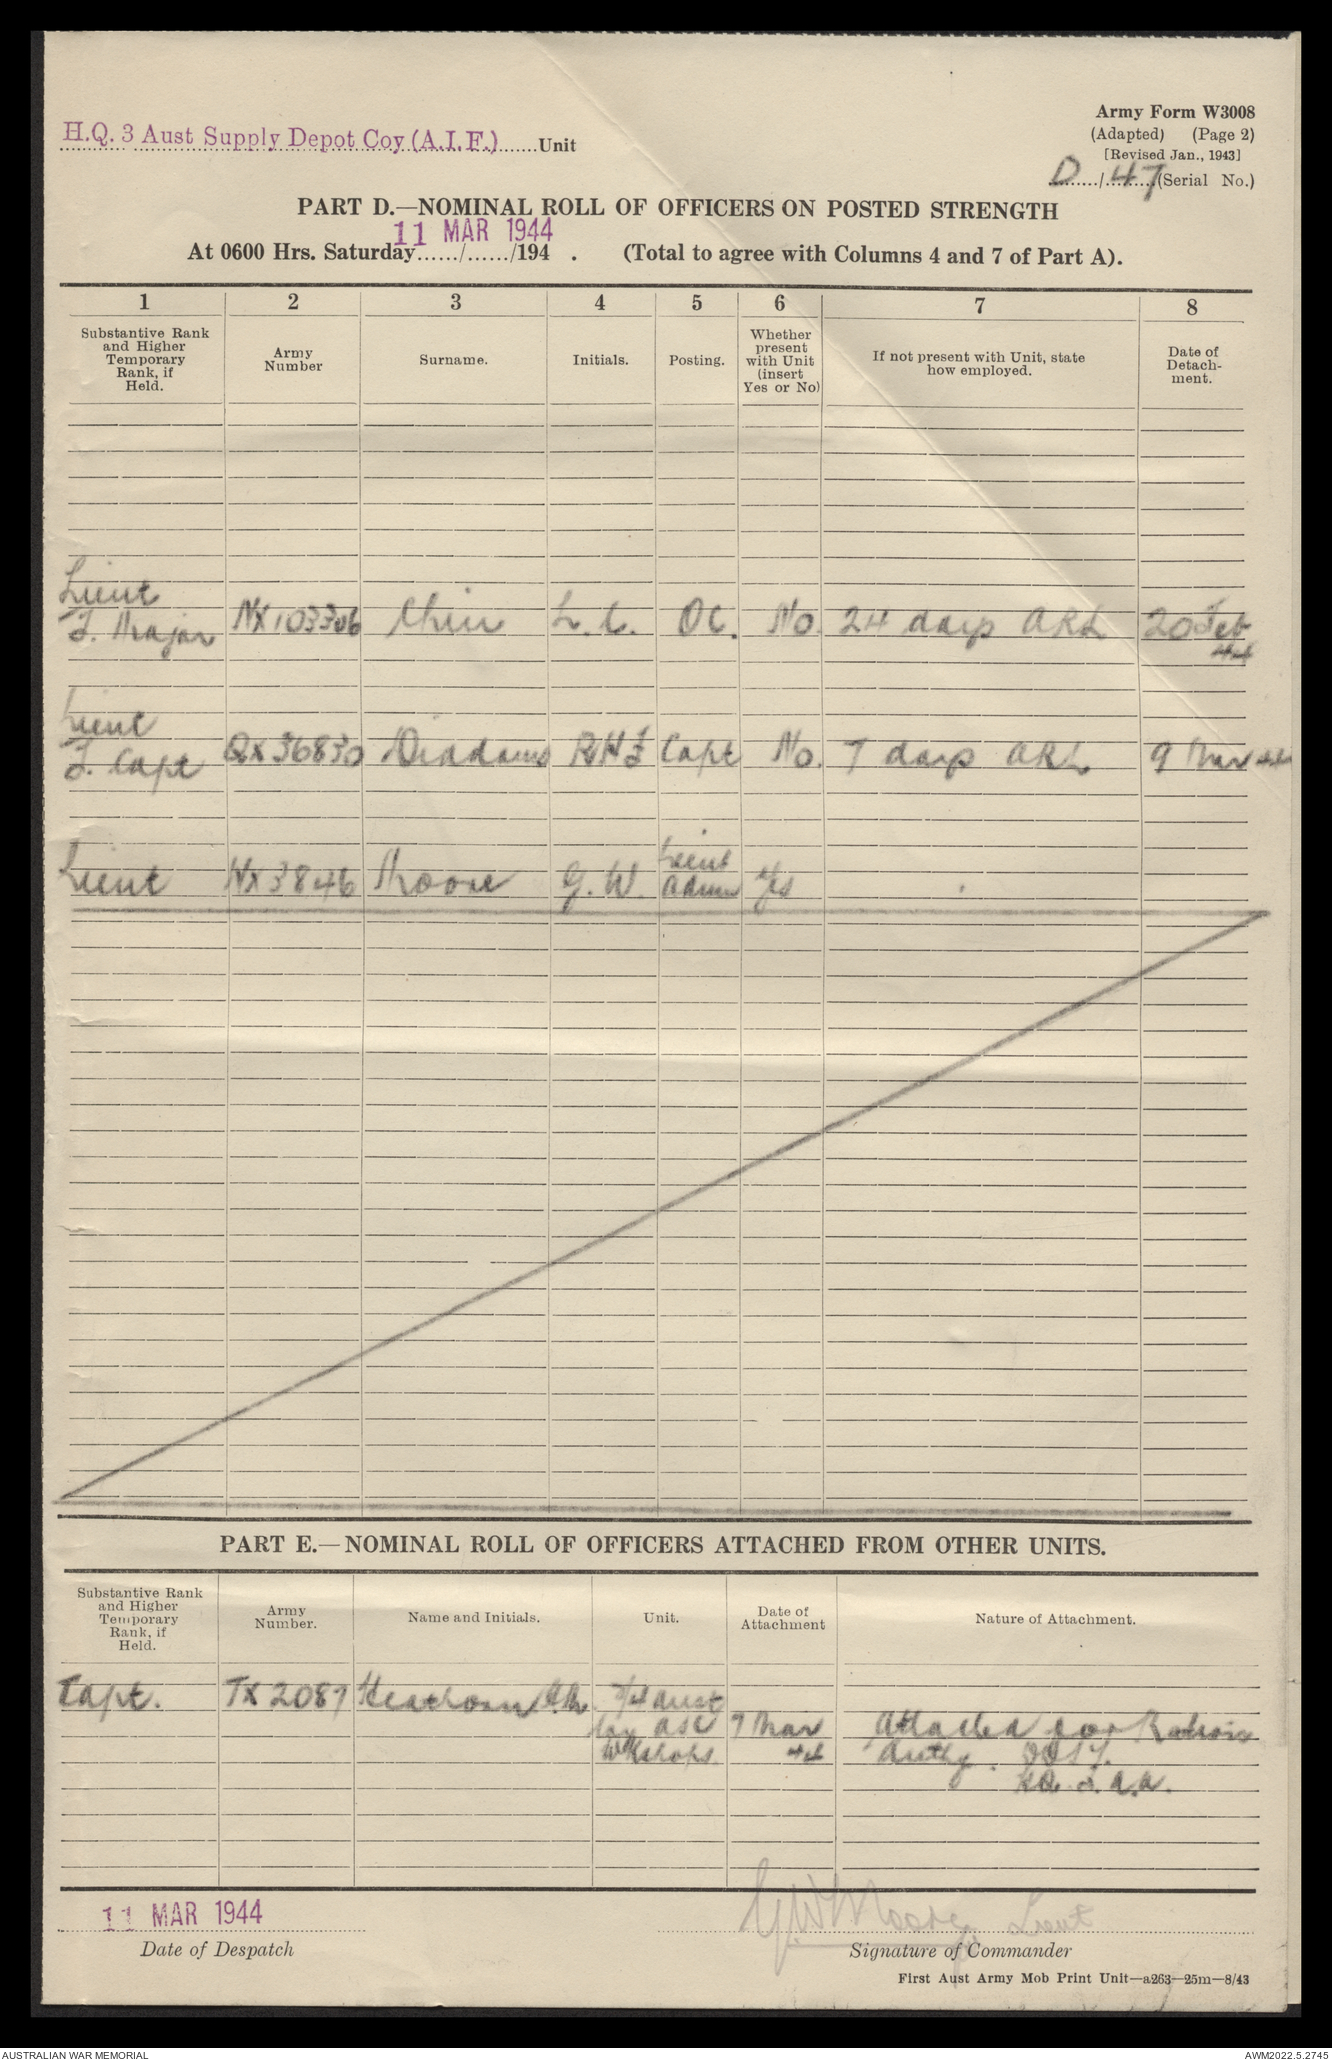 H.Q. 3 Aust Supply Depot Coy (A.I.F.) Unit
Army Form W3008
(Adapted) (Page 2)
[Revised Jan., 1943]
D/47 (Serial No.)
PART D.—NOMINAL ROLL OF OFFICERS ON POSTED STRENGTH
11 MAR 1944
At 0600 Hrs. Saturday....../....../194 . (Total to agree with Columns 4 and 7 of Part A).
1 2 3 4 5 6 7 8
Substantive Rank and Higher Temporary Rank, if Held.
Army Number
Surname.
Initials.
Posting.
Whether present with Unit (insert Yes or No)
If not present with Unit, state how employed.
Date of Detachment.
Lieut
T. Major NX103306 L. C. OC. No. 24 days ARL 20 Feb
44
Lieut
T. Capt QX36830 RHF Capt No. 7 days ARL 9 Mar 44
Lieut
Lieut NX3846 Moore G. W. Admin Yes
PART E.—NOMINAL ROLL OF OFFICERS ATTACHED FROM OTHER UNITS.
Substantive Rank and Higher Temporary Rank, if Held.
Army Number.
Name and Initials.
Unit.
Date of Attachment
Nature of Attachment.
Capt. TX2087 2/4 Aust
ASC 9 Mar Attached for Rations
Wkshops 44 Authy.
HQ
11 MAR 1944
GW Moore Lieut
Date of Despatch
Signature of Commander
First Aust Army Mob Print Unit—a263—25m—8/43
AUSTRALIAN WAR MEMORIAL
AWM2022.5.2745